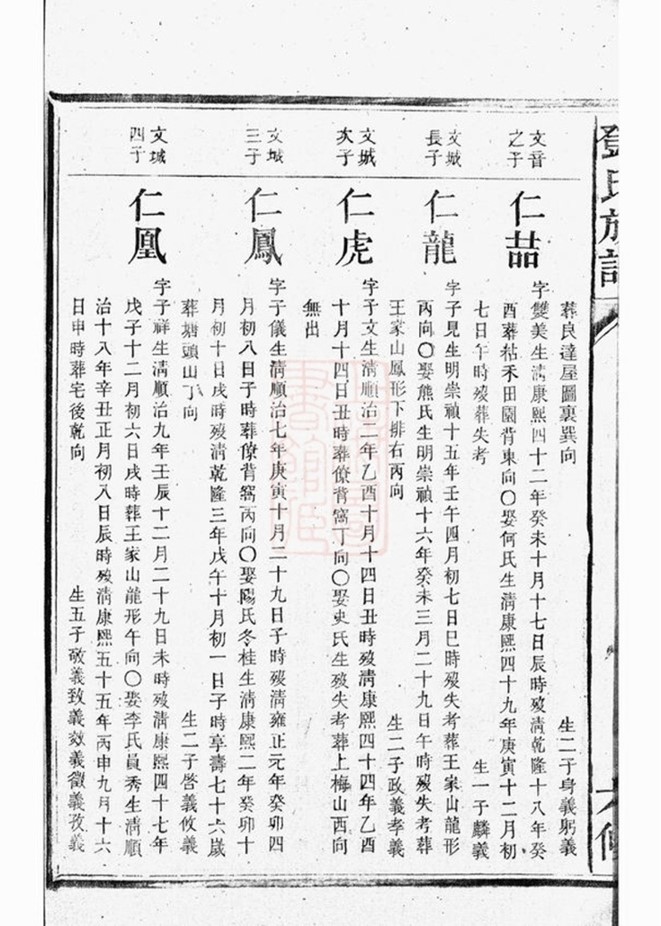 鄧氏族譜
六修
葬良達屋圖裏巽向
生二子身義躬義
文音之子
仁喆
字雙美生清康熙四十二年癸未十月十七日辰時歿清乾隆十八年癸
酉葬枯禾田園背東向〇娶何氏生清康熙四十九年庚寅十二月初
七日午時歿葬失考
生一子麟義
文城長子
仁龍
字子見生明崇禎十五年壬午四月初七日巳時歿失考葬王家山龍形
丙向〇娶熊氏生明崇禎十六年癸未三月二十九日午時歿失考葬
王家山鳳形下排右丙向
生二子政義孝義
文城次子
仁虎
字子文生清順治二年乙酉十月十四日丑時歿清康熙四十四年乙酉
十月十四日丑時葬僚背窩丁向〇娶史氏生歿失考葬上梅山西向
無出
文城三子
仁鳳
字子儀生清順治七年庚寅十月二十九日子時歿清雍正元年癸卯四
月初八日子時葬僚背窩丙向〇娶陽氏冬桂生清康熙二年癸卯十
月初十日戌時歿清乾隆三年戊午十月初一日子時享壽七十六歲
葬塘頭山丁向
生二子啓義攸義
文城四子
仁凰
字子祥生清順治九年壬辰十二月二十九日未時歿清康熙四十七年
戊子十二月初六日戌時葬王家山龍形午向〇娶李氏員秀生清順
治十八年辛丑正月初八日辰時歿清康熙五十五年丙申九月十六
日申時葬宅後乾向
生五子敬義致義效義徵義孜義